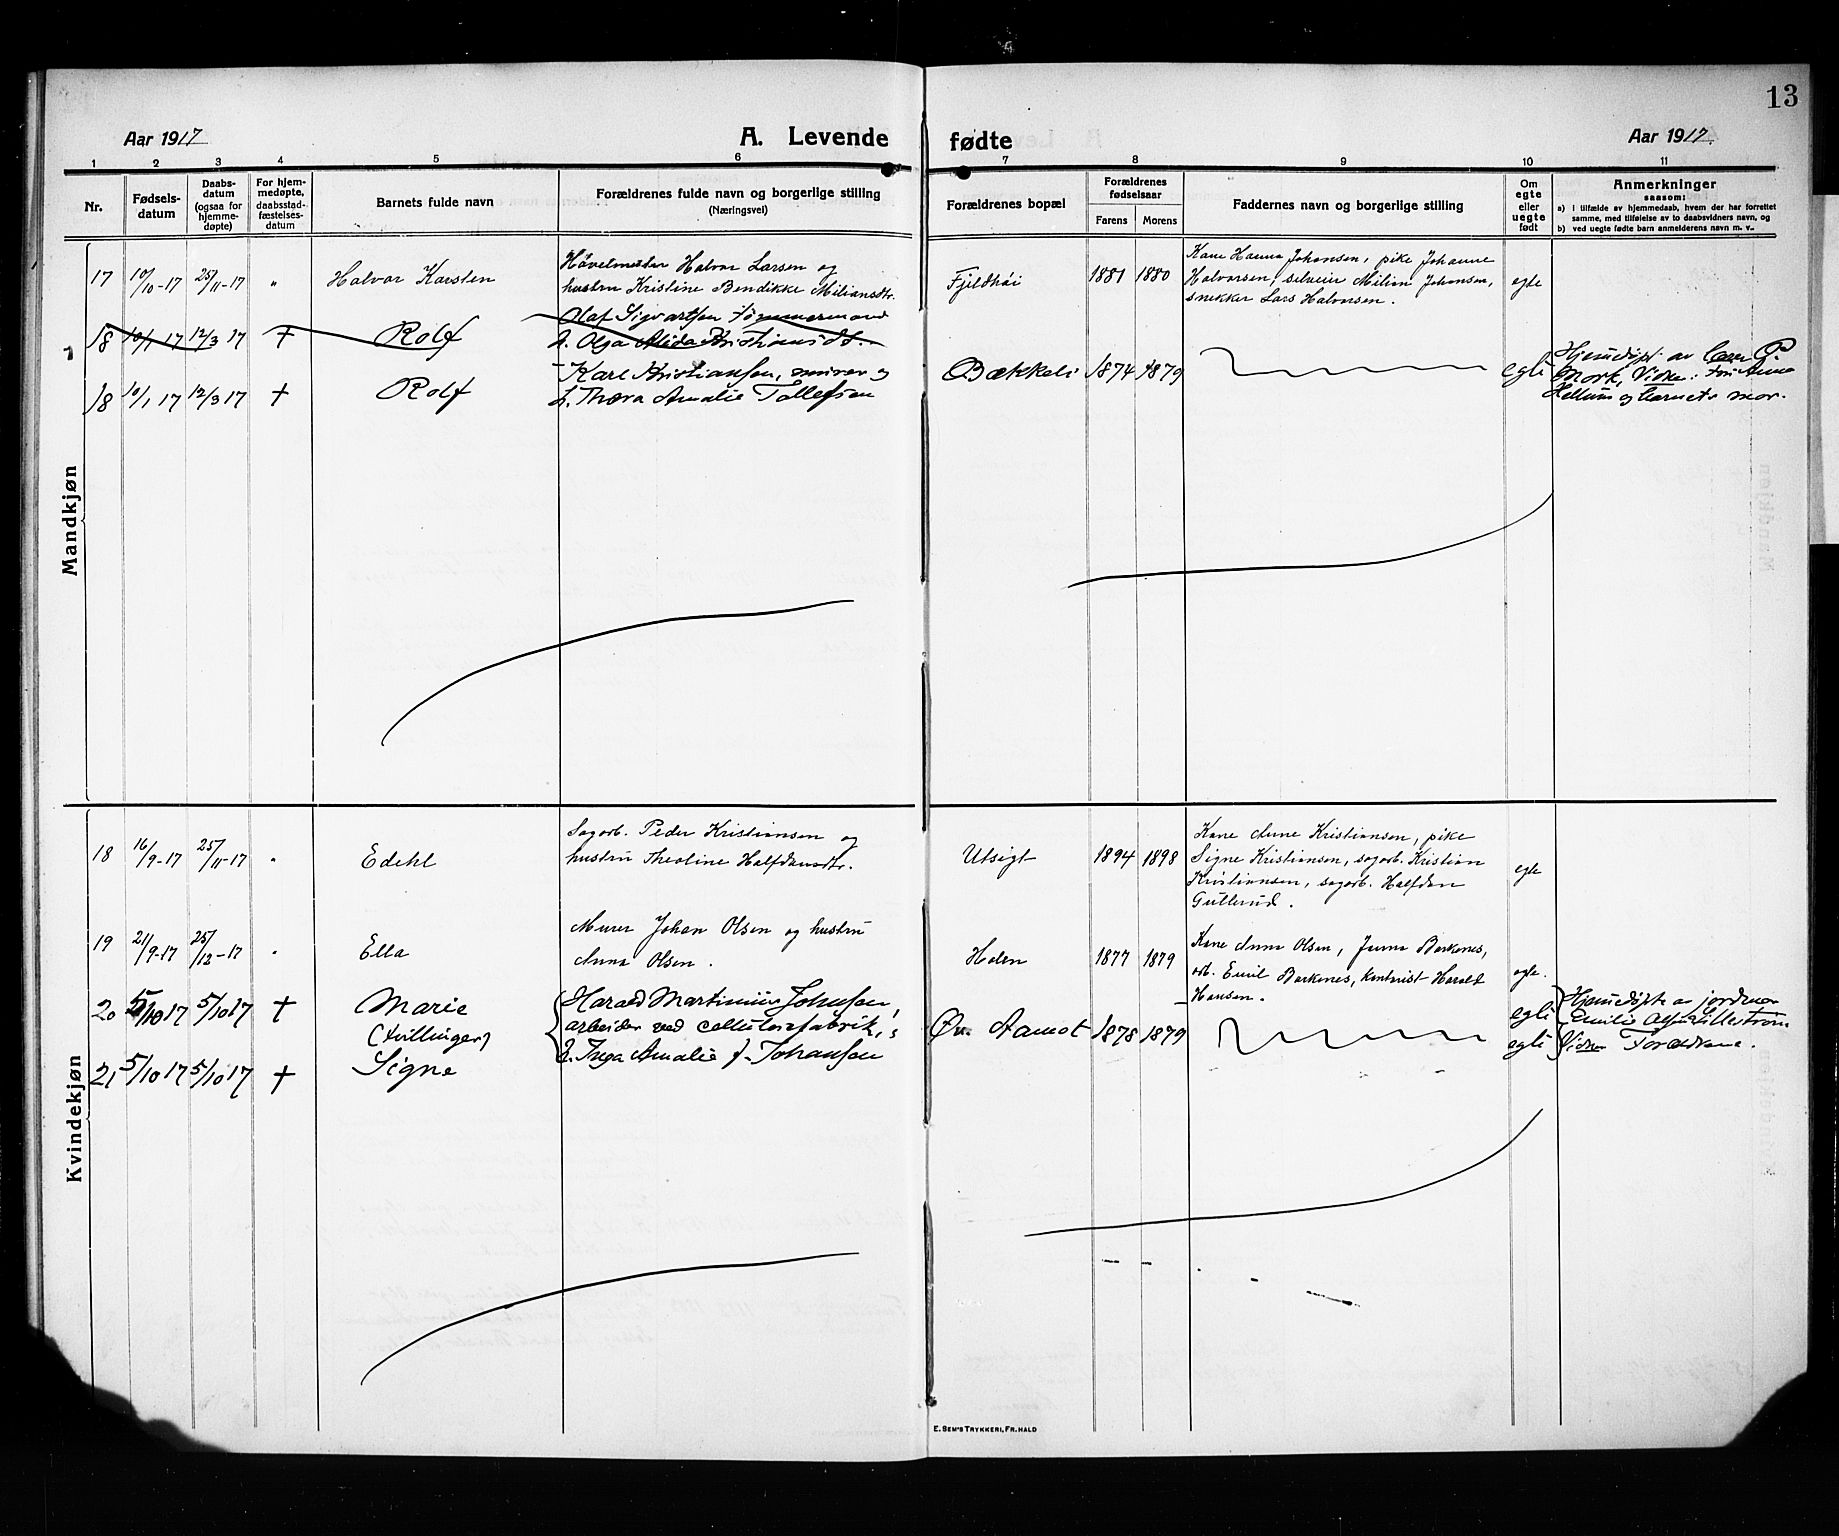 13
Aar 1917
A. Levende fødte
Aar 1917.
1 2 3 4 5 6 7 8 9 10 11
Nr.
Fødsels-
datum
Daabs-
datum
(ogsaa for
hjemme-
døpte)
For hjem-
medøpte,
daabsstad-
fæstelses-
datum
Barnets fulde navn
Forældrenes fulde navn og borgerlige stilling
(Næringsvei)
Forældrenes bopæl
Forældrenes
fødselsaar
Farens Morens
Faddernes navn og borgerlige stilling
Om
egte
eller
uegte
født
Anmerkninger
saasom:
a) i tilfælde av hjemmedaab, hvem der har forrettet
samme, med tilføielse av to daabsvidners navn, og
b) ved uegte fødte barn anmelderens navn m. v..
Mandkjøn
17 10/10-17 25/11-17 " Halvor Karsten
Høvelmester Halvor Larsen og
hustru Kristine Bendikke Miliansdtr.
Fjeldhöi 1881 1880
Kone Hanna Johansen, pike Johanne
Halvorsen, selveier Milian Johansen,
snekker Lars Halvorsen.
egte
18 10/1 17 12/3 17 + Rolf
Olaf Sigvartsen Tømmermand
H. Olga Alida Kristiansdt.
18 10/1 17 12/3 17 + Rolf
Karl Kristiansen, murer og
H. Thora Amalie Tollefsen
Bækkeli 1874 1879
egti
Hjemedøpt av
Mork, Vidne: Fru Anna
Hellum og barnets mor.
Kvindekjøn
18 16/9-17 25/11-17 " Edehl
Sagarb. Peder Kristiansen og
hustru Theoline Halfdansdtr.
Utsigt 1894 1898
Kone Anne Kristiansen, pike
Signe Kristiansen, sagarb. Kristian
Kristiansen, sagarb. Halfdan
Gullerud.
egte
19 21/9-17 25/12-17 " Ella
Murer Johan Olsen og hustru
Anna Olsen.
Holen 1877 1879
Kone Anna Olsen, Barkenes,
arb. Emil Barkenes, kontorist Harald
Hansen.
egte.
20 5/10 17 5/10 17 + Marie
(tvillinger)
21 5/10 17 5/10 17 + Signe
Harald Martinius Johansen,
arbeider ved cellulosefabrik,
H. Inga Amalie f. Johansen
Øv. Aamot 1878 1879
egti
egti
Hjemedøpte av jordmor
Emilie Lillestrøm
Vidner Forældrene.
E. SEM'S TRYKKERI, FR.HALD